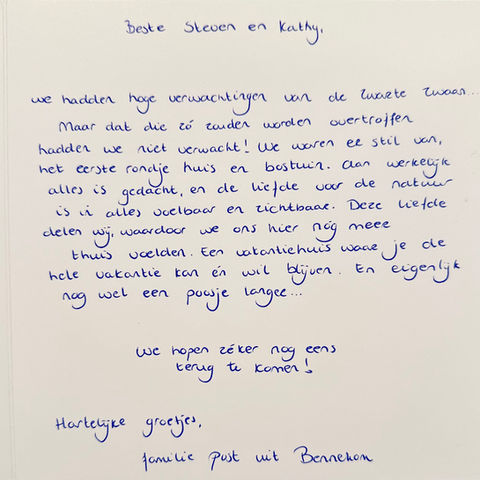 Beste Steven en Kathy,
we hadden hoge verwachtingen van de zwarte zwaan...
Maar dat die zó zouden worden overtroffen
hadden we niet verwacht! We waren er stil van,
het eerste rondje huis en bostuin. Aan werkelijk
alles is gedacht, en de liefde voor de natuur
is in alles voelbaar en zichtbaar. Deze liefde
delen wij, waardoor we ons hier nóg meer
thuis voelden. Een vakantiehuis waar je de
hele vakantie kan én wil blijven. En eigenlijk
nog wel een poosje langer...
We hopen zéker nog eens
terug te komen!
Hartelijke groetjes,
familie Post uit Bennekom